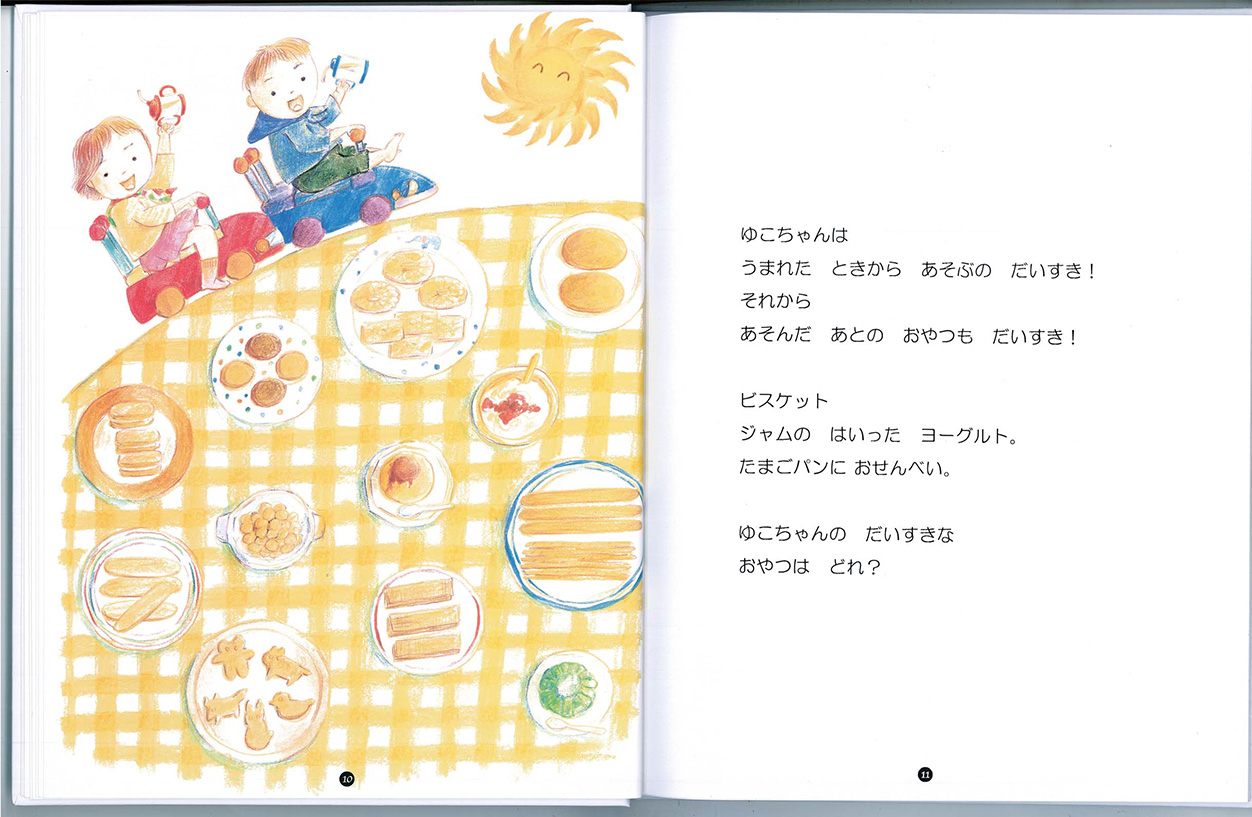 ゆこちゃんは
うまれた　ときから　あそぶの　だいすき！
それから
あそんだ　あとの　おやつも　だいすき！
ビスケット
ジャムの　はいった　ヨーグルト。
たまごパンに おせんべい。
ゆこちゃんの　だいすきな
おやつは　どれ？
10
11